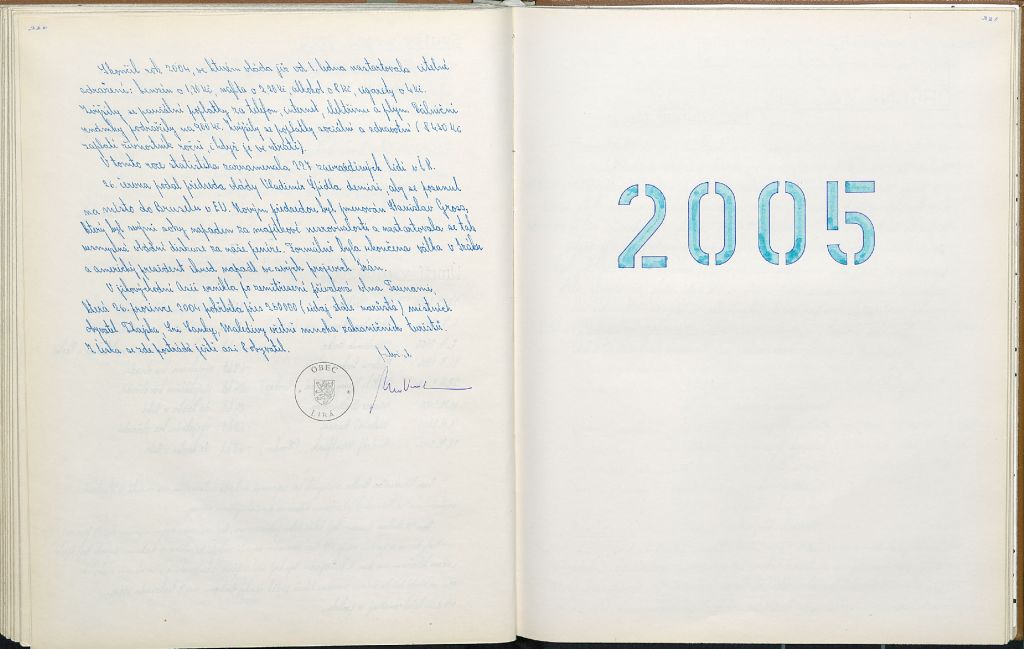 Skončil rok 2004, ve kterém vláda již od 1. ledna nastartovala citelné
zdražení: benzin o 1,20 Kč, nafta o 2,20 Kč, alkohol o 8 Kč, cigarety o 4 Kč.
Zvýšily se paušální poplatky za telefon, internet, elektřinu a plyn. Dálniční
známky podražily na 900 Kč. Zvýšily se poplatky sociální a zdravotní (
zaplatí živnostník ročně, i když je ve ztrátě).
V tomto roce statistika zaznamenala 227 zavražděných lidí v ČR.
26. června podal předseda vlády Vladimír Špidla demisi, aby se posunul
na místo do Bruselu v EU. Novým předsedou byl jmenován Stanislav Gross,
který byl svými soky napaden za majetkové nesrovnalosti a nastartovala se tak
nesmyslná vládní diskuze za naše peníze. Formálně byla skončena válka v Iráku
a americký prezident ihned napadl ve svých projevech Írán.
V jihovýchodní Asii vznikla po zemětřesení přívalová vlna Tsunami,
která 26. prosince 2004 pohřbila přes 280000 (údaj stále narůstá) místních
obyvatel Thajska, Srí Lanky, Maledivy včetně mnoha zahraničních turistů.
Z Česka se zde postrádá ještě asi 8 obyvatel.
OBEC
LÍPA
2005